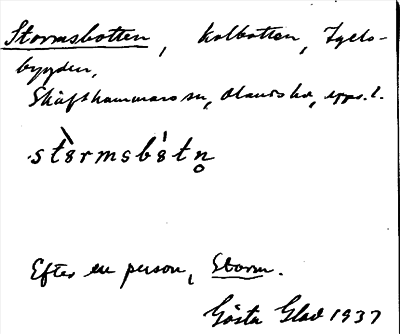 Stormsbotten, kolbotten, Igels-
bygden,
Skäfthammars sn, Olands hd, Upps. l.
stȯ̀rmsbȯ́tn̥
Efter en person, Storm.
Gösta Glad 1937